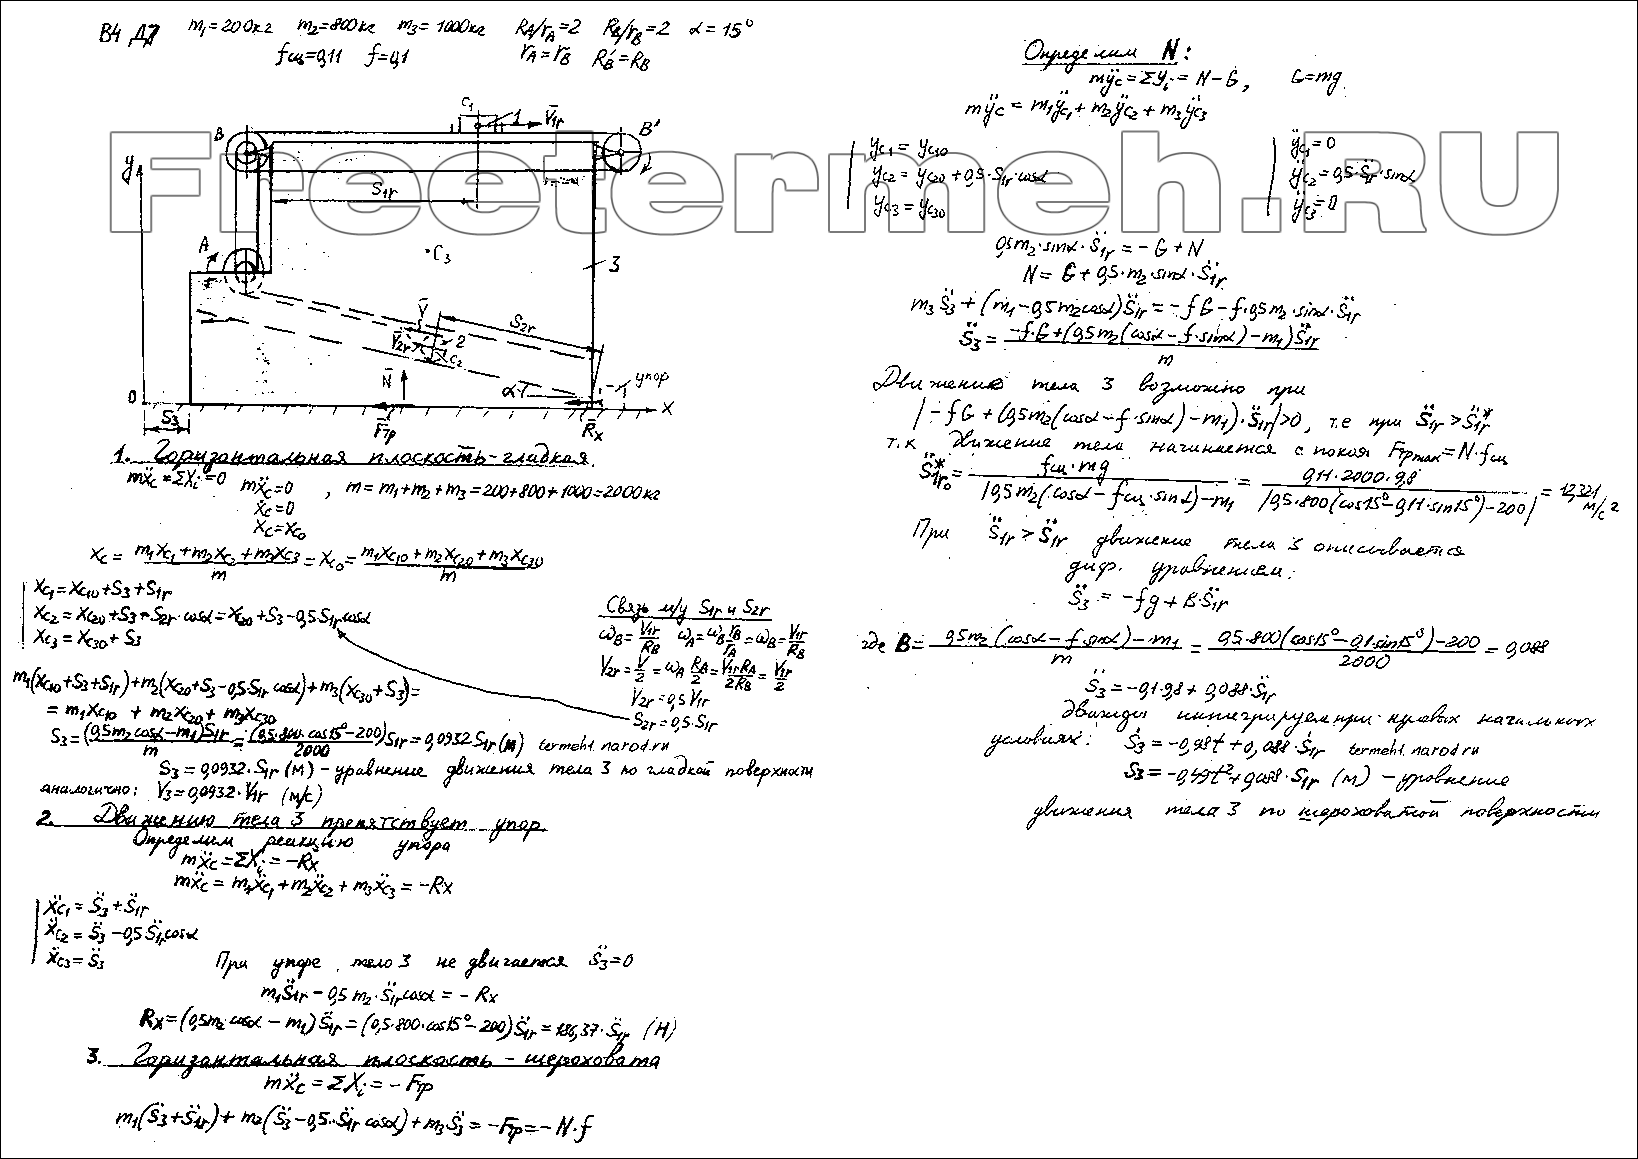 В4 Д7 m₁=200кг m₂=800кг m₃=1000кг R_A/r_A=2 R_B/r_B=2 α=15°
f_сц=0,11 f=0,1 r_A=r_B R_B'=R_B
C₁
1
V̄₁r
B
B'
y
S₁r
A
C₃
3
V̄
S₂r
V̄₂r
2
C₂
N̄
α
упор
0
x
S₃
F̄тр
R̄x
Freetermeh.RU
1. Горизонтальная плоскость-гладкая.
mẍc=ΣXᵢ=0 mẍc=0, m=m₁+m₂+m₃=200+800+1000=2000кг
ẋc=0
xc=xc₀
xc = (m₁xc₁+m₂xc₂+m₃xc₃)/m = xc₀ = (m₁xc₁₀+m₂xc₂₀+m₃xc₃₀)/m
xc₁=xc₁₀+S₃+S₁r
xc₂=xc₂₀+S₃-S₂r·cosα=xc₂₀+S₃-0,5·S₁r cosα
xc₃=xc₃₀+S₃
Связь м/у S₁r и S₂r
ω_B=V₁r/R_B ω_A=ω_B r_B/r_A=ω_B=V₁r/R_B
V₂r=V/2=ω_A R_A/2=V₁rR_A/2R_B=V₁r/2
V₂r=0,5V₁r
S₂r=0,5·S₁r
m₁(xc₁₀+S₃+S₁r)+m₂(xc₂₀+S₃-0,5·S₁r cosα)+m₃(xc₃₀+S₃)=
= m₁xc₁₀ + m₂xc₂₀+ m₃xc₃₀
S₃=(0,5m₂cosα-m₁)S₁r/m=(0,5·800·cos15°-200)/2000 S₁r=0,0932·S₁r(м) termeh1.narod.ru
S₃=0,0932·S₁r (м) - уравнение движения тела 3 по гладкой поверхности
аналогично: V₃=0,0932·V₁r (м/с)
2. Движению тела 3 препятствует упор
Определим реакцию упора
mẍc=ΣXᵢ=-Rx
mẍc=m₁ẍc₁+m₂ẍc₂+m₃ẍc₃=-Rx
ẍc₁=S̈₃+S̈₁r
ẍc₂=S̈₃-0,5·S̈₁r cosα
ẍc₃=S̈₃
При упоре тело 3 не двигается S̈₃=0
m₁S̈₁r-0,5m₂·S̈₁r cosα=-Rx
Rx=(0,5m₂cosα-m₁)S̈₁r=(0,5·800·cos15°-200)S̈₁r=186,37·S̈₁r (Н)
3. Горизонтальная плоскость - шероховата
mẍc=ΣXᵢ=-Fтр
m₁(S̈₃+S̈₁r)+m₂(S̈₃-0,5·S̈₁r cosα)+m₃S̈₃=-Fтр=-N·f
Определим N:
mÿc=ΣYᵢ=N-G, G=mg
mÿc=m₁ÿc₁+m₂ÿc₂+m₃ÿc₃
yc₁=yc₁₀
yc₂=yc₂₀+0,5·S₁r·cosα
yc₃=yc₃₀
ÿc₁=0
ÿc₂=0,5·S̈₁r·sinα
ÿc₃=0
0,5m₂·sinα·S̈₁r=-G+N
N=G+0,5·m₂·sinα·S̈₁r
m₃S̈₃+(m₁-0,5m₂cosα)S̈₁r=-fG-f·0,5m₂·sinα·S̈₁r
S̈₃=(-f·G+(0,5m₂(cosα-f·sinα)-m₁)S̈₁r)/m
Движение тела 3 возможно при
|-fG+(0,5m₂(cosα-f·sinα)-m₁)·S̈₁r|>0, т.е при S̈₁r>S̈₁r*
т.к движение тела начинается с покоя Fтрmax=N·f_сц
S̈₁r₀*=f_сц·mg/|0,5m₂(cosα-f_сц·sinα)-m₁|=0,11·2000·9,8/|0,5·800(cos15°-0,11·sin15°)-200|=12,321 м/с²
При S̈₁r>S̈₁r движение тела 3 описывается
диф. уравнением:
S̈₃=-fg+B·S̈₁r
где B=(0,5m₂(cosα-f·sinα)-m₁)/m=(0,5·800(cos15°-0,1·sin15°)-200)/2000=0,088
S̈₃=-0,1·9,8+0,088·S̈₁r
дважды интегрируем при нулевых начальных
условиях: Ṡ₃=-0,98t+0,088·Ṡ₁r termeh1.narod.ru
S₃=-0,49t²+0,088·S₁r (м) - уравнение
движения тела 3 по шероховатой поверхности